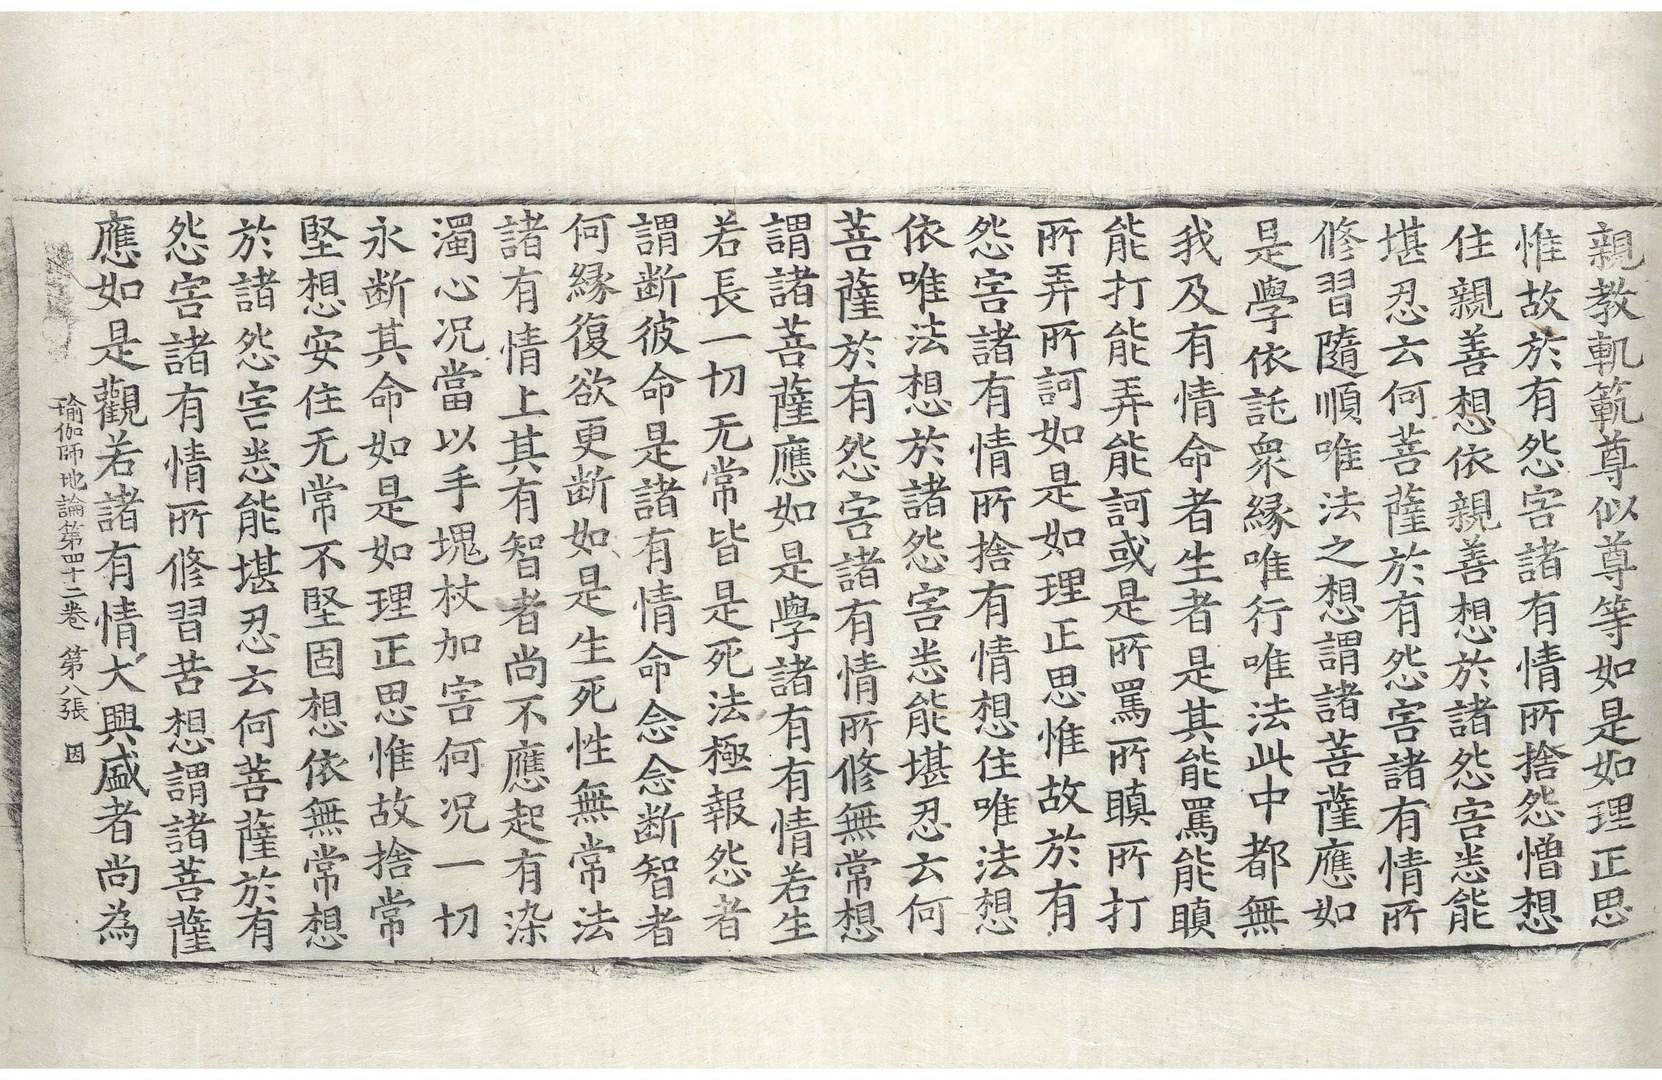 親教軌範尊似尊等如是如理正思
惟故於有怨害諸有情所捨怨憎想
住親善想依親善想於諸怨害悉能
堪忍云何菩薩於有怨害諸有情所
修習隨順唯法之想謂諸菩薩應如
是學依託衆緣唯行唯法此中都無
我及有情命者生者是其能罵能瞋
能打能弄能訶或是所罵所瞋所打
所弄所訶如是如理正思惟故於有
怨害諸有情所捨有情想住唯法想
依唯法想於諸怨害悉能堪忍云何
菩薩於有怨害諸有情所修無常想
謂諸菩薩應如是學諸有有情若生
若長一切无常皆是死法極報怨者
謂断彼命是諸有情命念念断智者
何緣復欲更断如是生死性無常法
諸有情上其有智者尚不應起有染
濁心况當以手塊杖加害何况一切
永断其命如是如理正思惟故捨常
堅想安住无常不堅固想依無常想
於諸怨害悉能堪忍云何菩薩於有
怨害諸有情所修習苦想謂諸菩薩
應如是觀若諸有情大興盛者尚為
瑜伽師地論第四十二卷 第八張 因